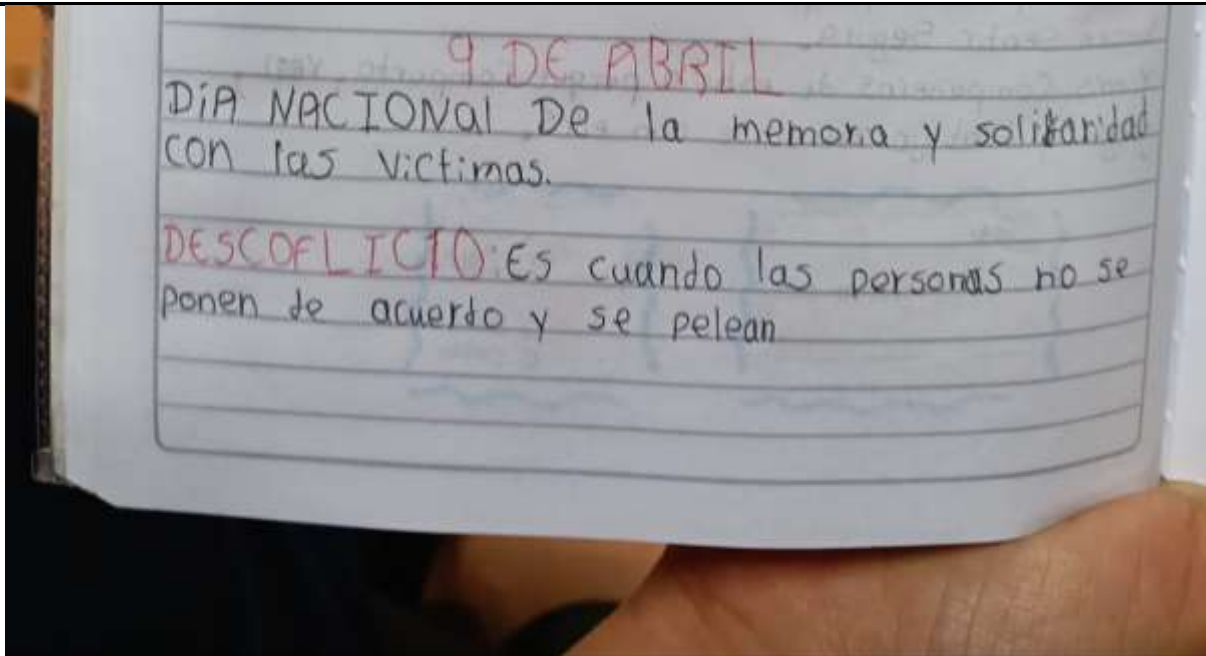 9 DE ABRIL
DiA NACIONAl De la memoria y solidaridad
con las victimas.
DESCOFLICTO: Es cuando las personas no se
ponen de acuerdo y se pelean